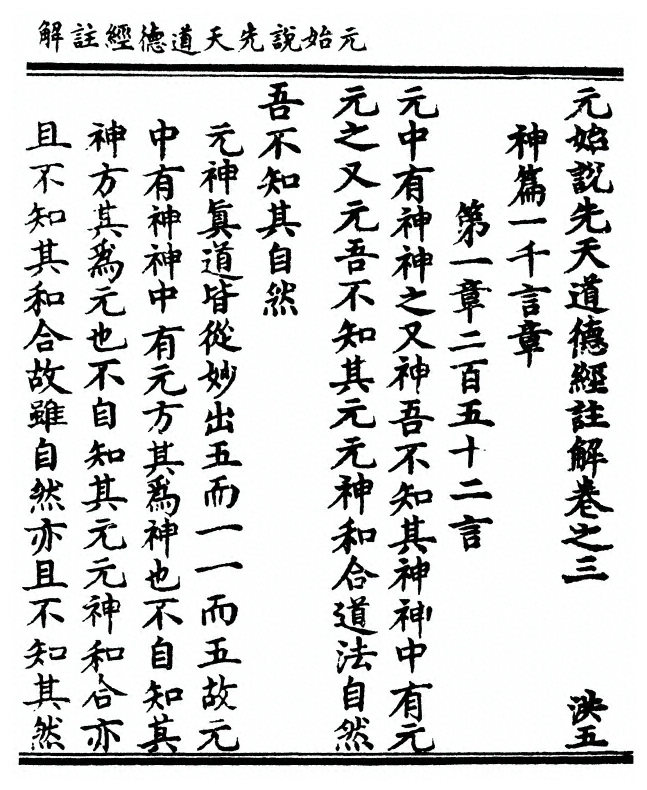 元始說先天道德經註解
元始說先天道德經註解卷之三 泱五
神篇一千言章
第一章二百五十二言
元中有神神之又神吾不知其神神中有元
元之又元吾不知其元元神和合道法自然
吾不知其自然
元神眞道皆從妙出五而一一而五故元
中有神神中有元方其爲神也不自知其
神方其爲元也不自知其元元神和合亦
且不知其和合故雖自然亦且不知其然